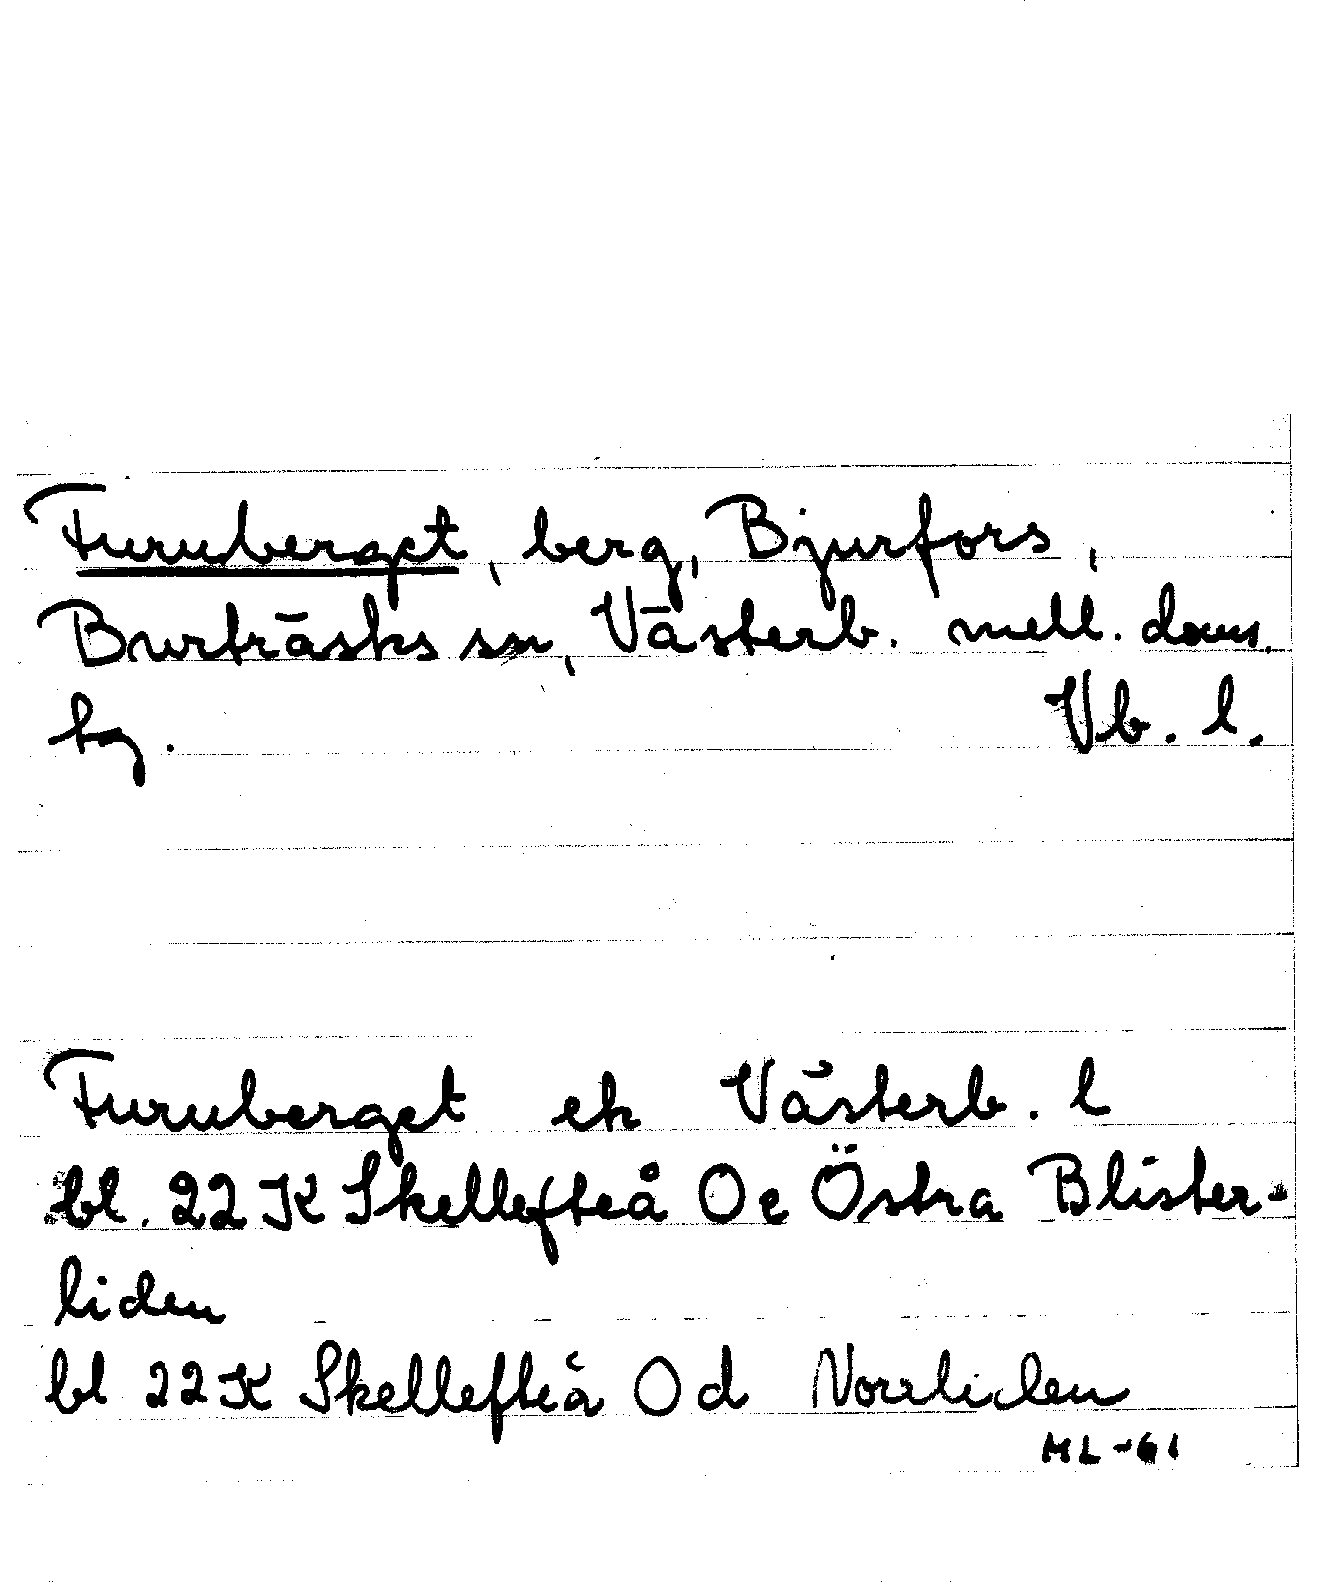 Furuberget, berg, Bjurfors,
Burträsks sn, Västerb. mell. doms.
hg. Vb. l.
Furuberget ek Västerb. l
bl. 22 K Skellefteå Oe Östra Blister-
liden
bl 22 K Skellefteå Od Norrliden
ML-61